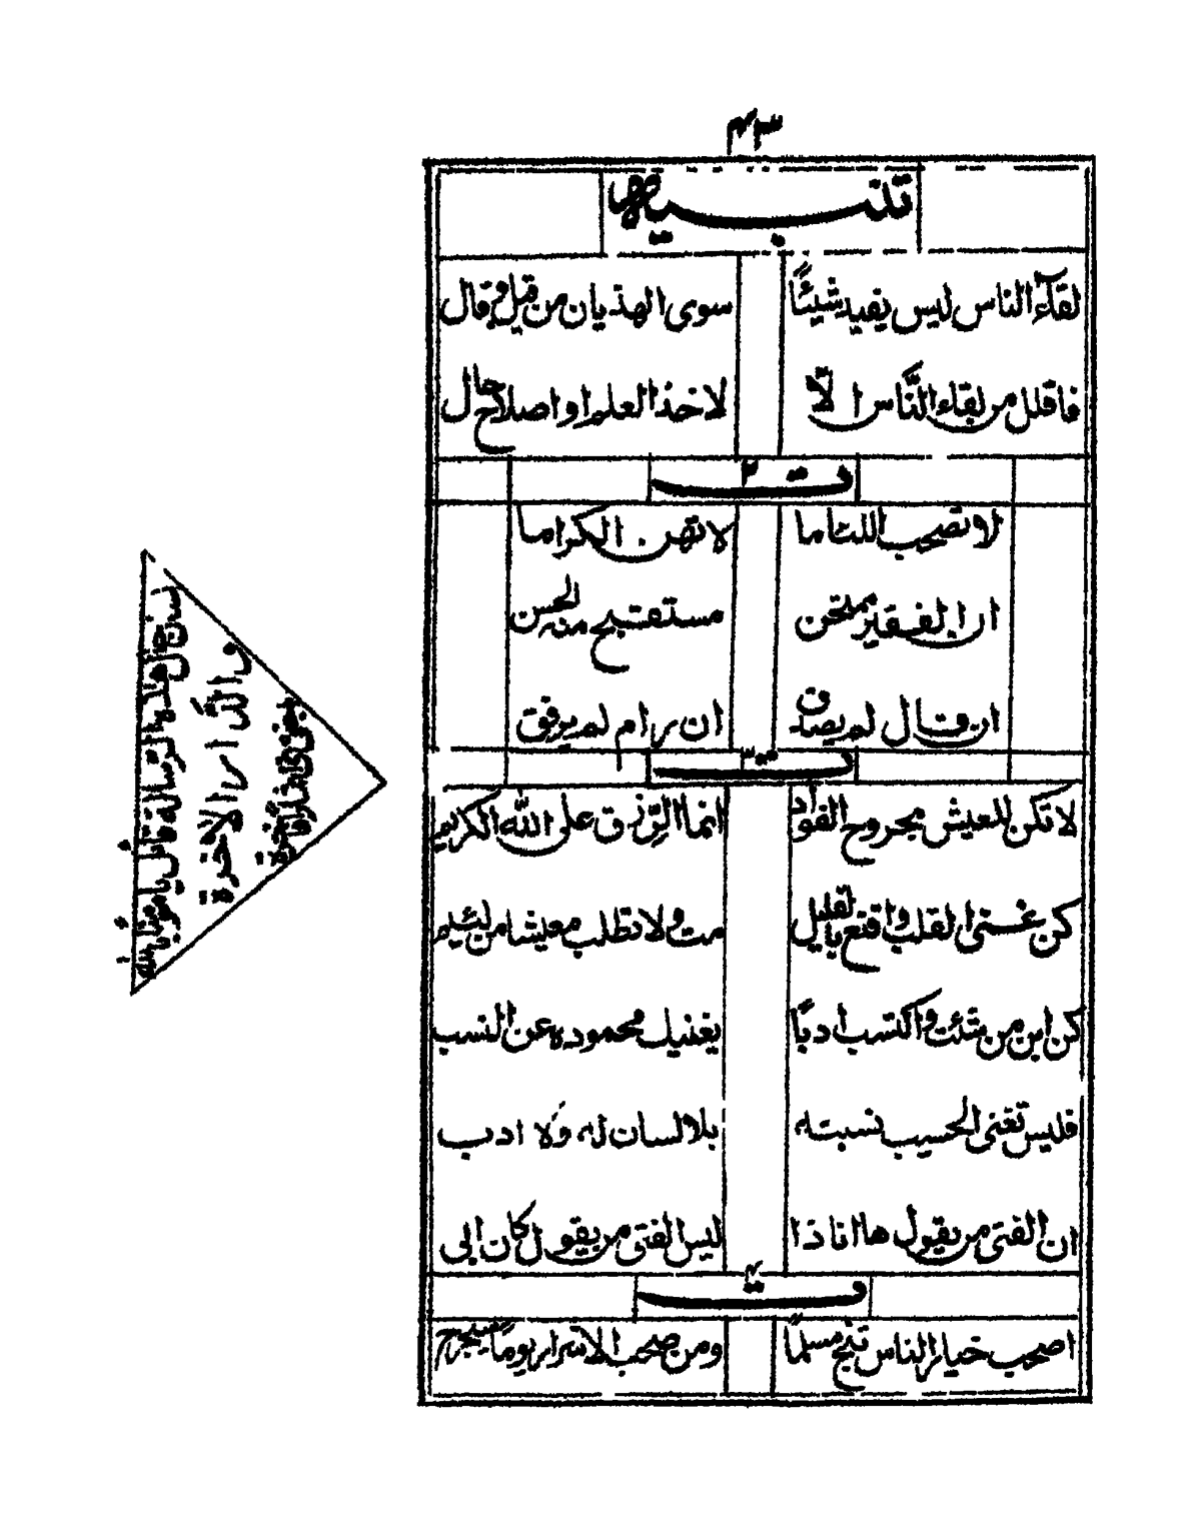 تنبيه
لقآء الناس ليس يفيد شيئًا سوى الهذيان من قيل وقال
فاقلل من لقاء النَّاس الّا لاخذ العلم او اصلاح حال
ت ٢
لا تصحب اللئاما لا تهن الكراما
ان الفقير ممتحن مستقبح منه الحسن
ان قال لم يصدق ان رام لم يرفق
ت ٣
لا تكن للعيش مجروح الفواد انما الرّزق على الله الكريم
كن غنى القلب واقنع بالقليل مت ولا تطلب معيشا من لئيم
كن ابن من شئت واكتسب ادبًا يغنيك محموده عن النسب
فليس تغنى الحسيب نسبته بلا لسان له ولا ادب
ان الفتى من يقول ها انا ذا ليس الفتى من يقول كان ابى
ت ٤
اصحب خيار الناس تنج مسلمًا ومن صحب الاشرار يومًا سيجرح
هذه الرسالة
والدّار الاخرة